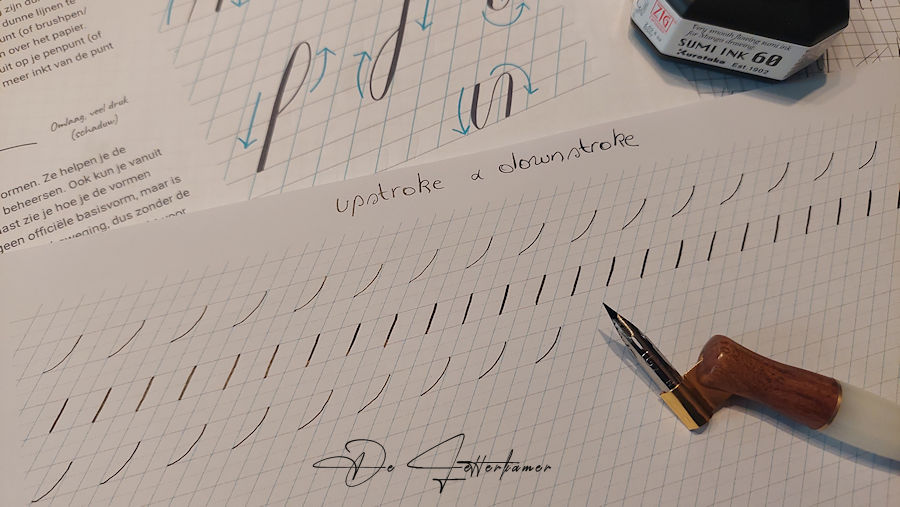 zijn dun
dunne lijnen te
unt (of brushpen/
n over het papier.
uit op je penpunt (of
meer inkt van de punt
Omlaag, veel druk
(schaduw)
ormen. Ze helpen je de
beheersen. Ook kun je vanuit
ast zie je hoe je de vormen
geen officiële basisvorm, maar is
weging, dus zonder de
voor
ZIG
Very smooth flowing sumi ink
for Manga drawing
SUMI INK 60
Kuretake Est.1902
upstroke & downstroke
De Letterkamer